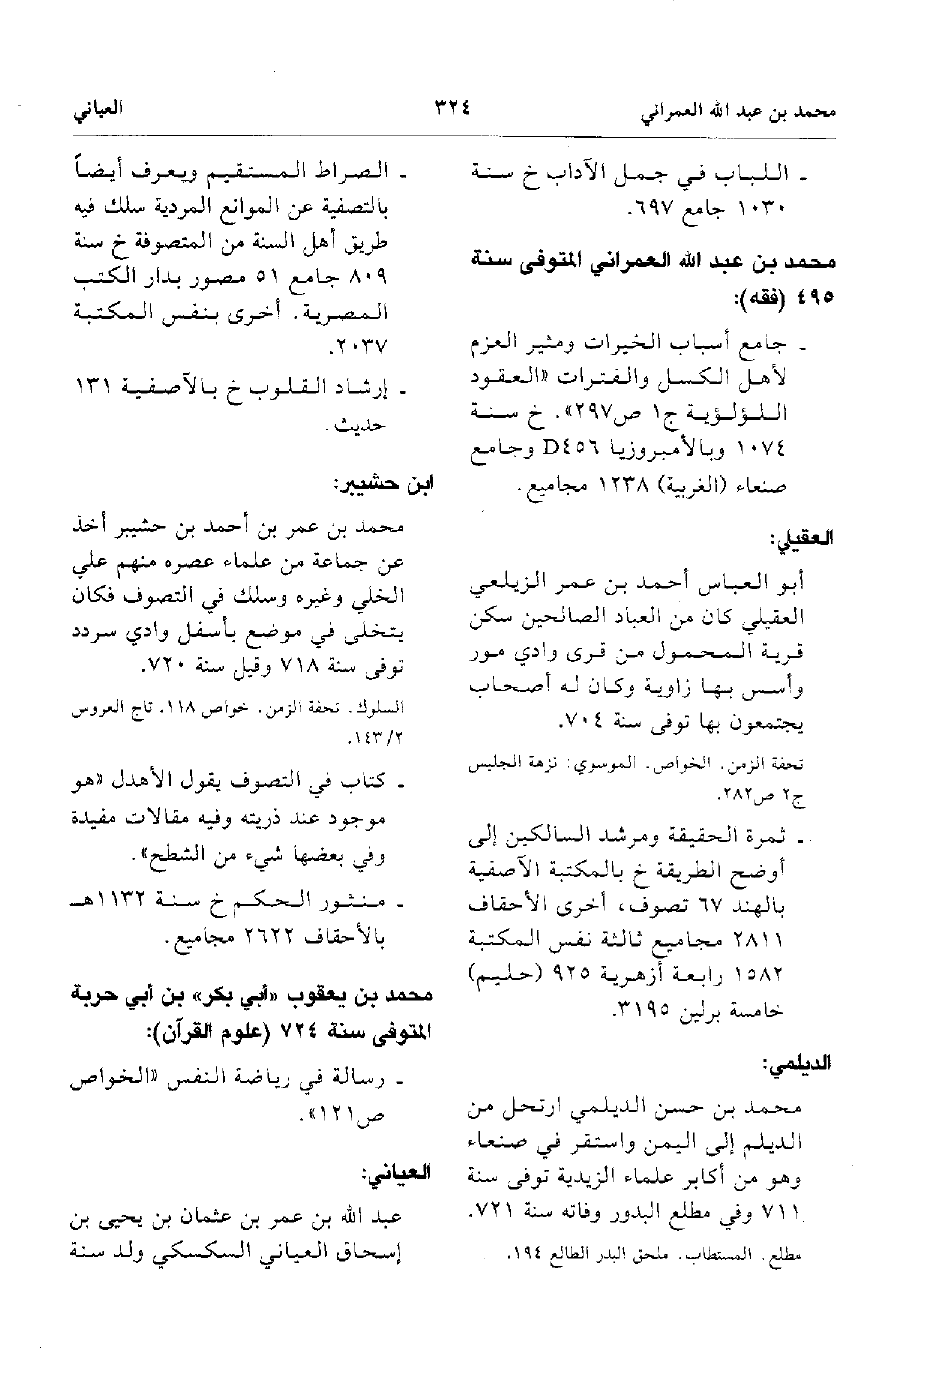 محمد بن عبد الله العمراني
٣٢٤
العياني
ـ اللباب في جمل الآداب خ سنة
١٠٣٠ جامع ٦٩٧.
محمد بن عبد الله العمراني المتوفى سنة
٤٩٥ (فقه):
ـ جامع أسباب الخيرات ومثير العزم
لأهل الكسل والفترات «العقود
اللؤلؤية ج١ ص٢٩٧». خ سنة
١٠٧٤ وبالأمبروزيا D٤٥٦ وجامع
صنعاء (الغربية) ١٢٣٨ مجاميع.
العقيلي:
أبو العباس أحمد بن عمر الزيلعي
العقيلي كان من العباد الصالحين سكن
قرية المحمول من قرى وادي مور
وأسس بها زاوية وكان له أصحاب
يجتمعون بها توفى سنة ٧٠٤.
تحفة الزمن. الخواص. الموسوي: نزهة الجليس
ج٢ ص٢٨٢.
ـ ثمرة الحقيقة ومرشد السالكين إلى
أوضح الطريقة خ بالمكتبة الآصفية
بالهند ٦٧ تصوف، أخرى الأحقاف
٢٨١١ مجاميع ثالثة نفس المكتبة
١٥٨٢ رابعة أزهرية ٩٢٥ (حليم)
خامسة برلين ٣١٩٥.
الديلمي:
محمد بن حسن الديلمي ارتحل من
الديلم إلى اليمن واستقر في صنعاء
وهو من أكابر علماء الزيدية توفى سنة
٧١١ وفي مطلع البدور وفاته سنة ٧٢١.
مطلع. المستطاب. ملحق البدر الطالع ١٩٤.
ـ الصراط المستقيم ويعرف أيضاً
بالتصفية عن الموانع المردية سلك فيه
طريق أهل السنة من المتصوفة خ سنة
٨٠٩ جامع ٥١ مصور بدار الكتب
المصرية. أخرى بنفس المكتبة
٢٠٣٧.
ـ إرشاد القلوب خ بالآصفية ١٣١
حديث.
ابن حشيبر:
محمد بن عمر بن أحمد بن حشيبر أخذ
عن جماعة من علماء عصره منهم علي
الخلي وغيره وسلك في التصوف فكان
يتخلى في موضع بأسفل وادي سردد
توفى سنة ٧١٨ وقيل سنة ٧٢٠.
السلوك. تحفة الزمن. خواص ١١٨. تاج العروس
١٤٣/٢.
ـ كتاب في التصوف يقول الأهدل «هو
موجود عند ذريته وفيه مقالات مفيدة
وفي بعضها شيء من الشطح».
ـ منثور الحكم خ سنة ١١٣٢هـ
بالأحقاف ٢٦٢٢ مجاميع.
محمد بن يعقوب «أبي بكر» بن أبي حربة
المتوفى سنة ٧٢٤ (علوم القرآن):
ـ رسالة في رياضة النفس «الخواص
ص١٢١».
العياني:
عبد الله بن عمر بن عثمان بن يحيى بن
إسحاق العياني السكسكي ولد سنة